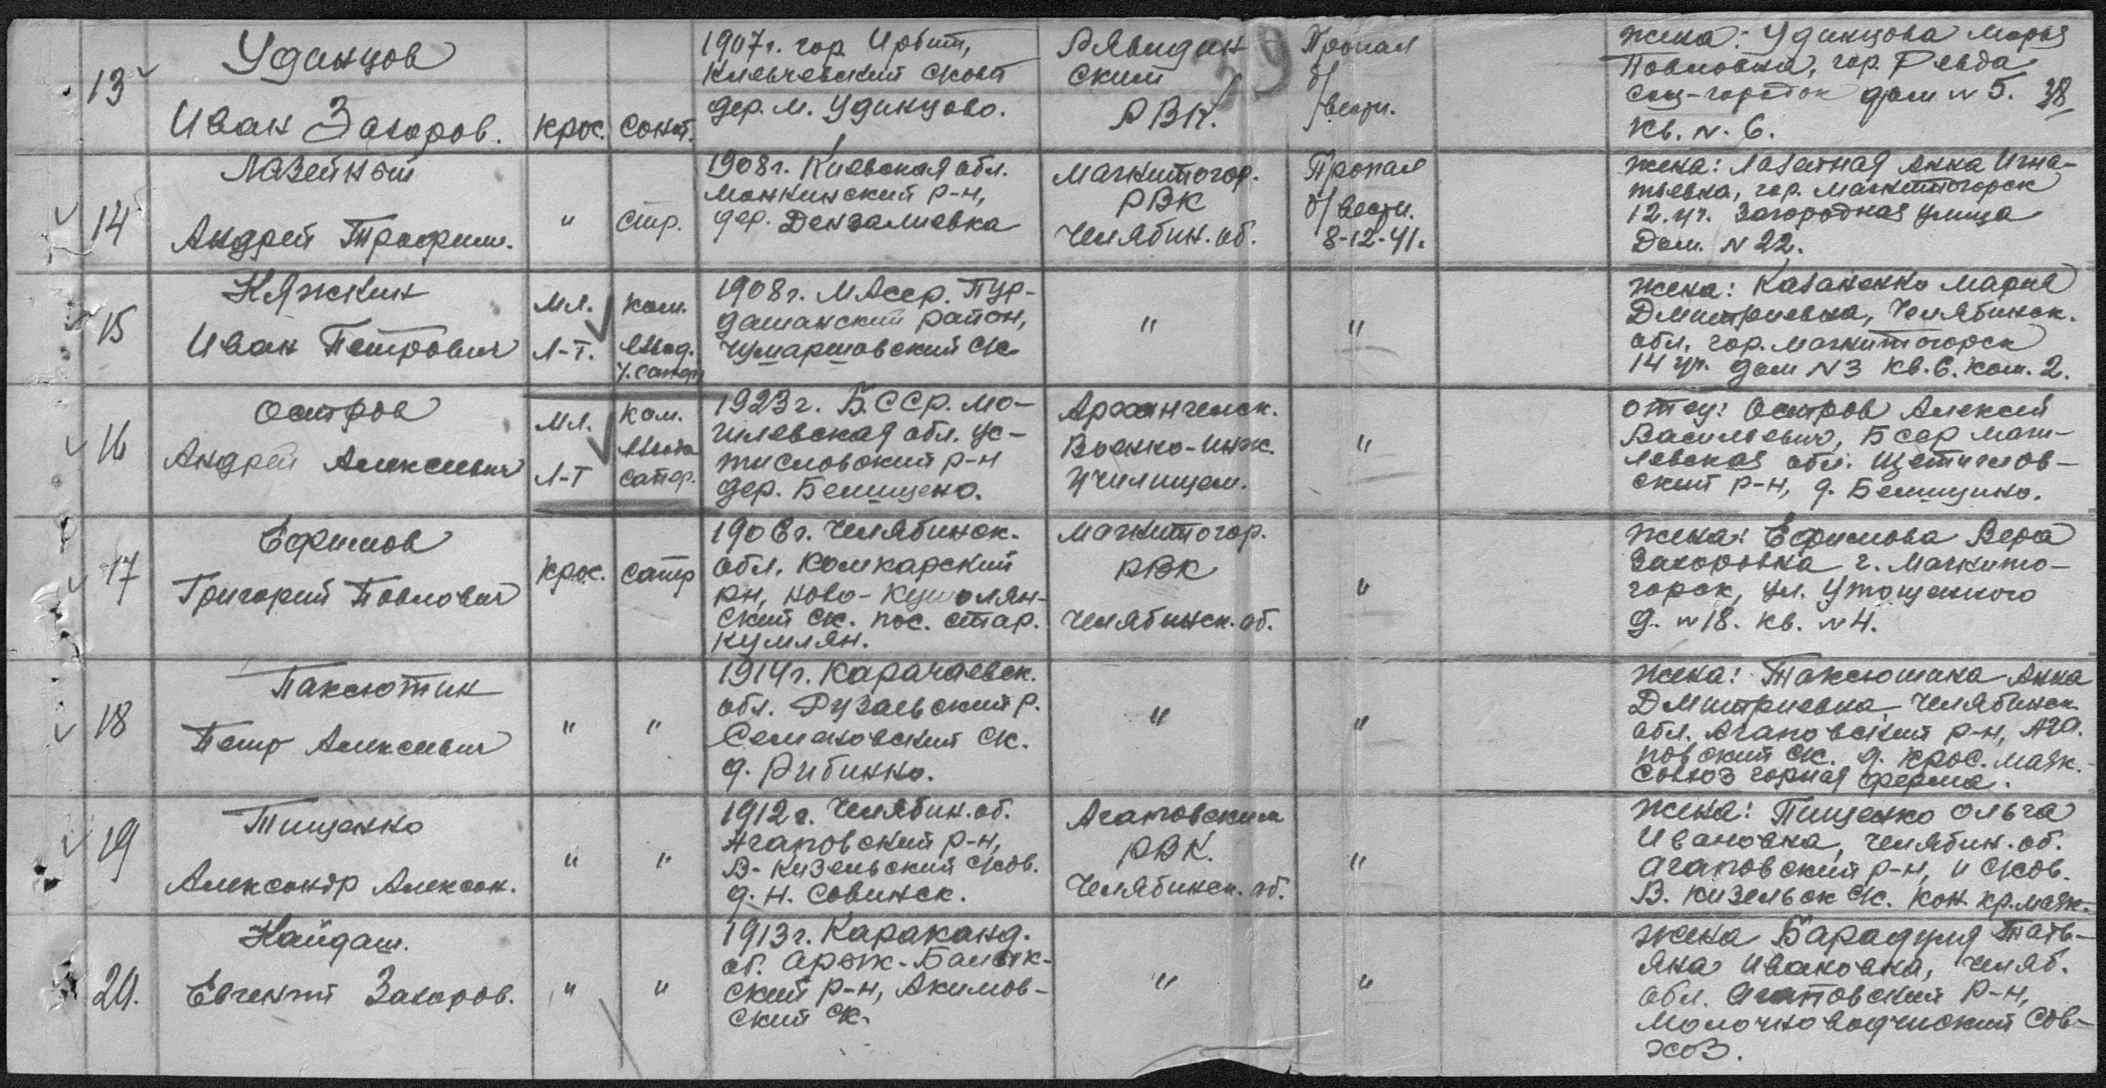 13 Удинцов
Иван Захаров.
крас.
1907г. гор Ирбит,
дер. м. Удинцово.
ский
РВК.
39
Пропал
б/вести.
жена: Удинцова Марья
Павловна, гор. Ревда
соц-городок дом №5. 38
кв. №. 6.
14 Лазейный
Андрей Трофим.
"
стр.
1908г. Киевская обл.
Манкинский р-н,
дер. Дензалиевка
Магнитогор.
РВК
Челябин. об.
Пропал
б/вести.
8-12-41г.
жена: Лазейная Анна Игна-
тьевна, гор. Магнитогорск
12. уч. Загородная улица
Дом. №22.
15 Няжкин
Иван Петрович
Мл.
Л-т.
ком.
взвод.
1908г. МАССР. Пур-
дашанский район,
"
"
жена: Казаненко Мария
Дмитриевна, Челябинск.
обл. гор. Магнитогорск
14 уч. дом №3 кв. 6. ком. 2.
16 Остров
Андрей Алексеевич
Мл.
Л-т
ком.
взвода
сапер.
1923г. БССР. Мо-
гилевская обл. ус-
тисловский р-н
дер. Белищено.
Архангельск.
Военно-инж.
училищем.
"
отец: Остров Алексей
Васильевич, БССР Маги-
левская обл. Щетислов-
ский р-н, д. Белищино.
17 Ефимов
Григорий Павлович
крас.
сапер
1906г. Челябинск.
обл.
рн, Ново-Кумлян-
ский ск. пос. стар.
кумлян.
Магнитогор.
РВК
Челябинск. об.
"
жена: Ефимова Вера
Захаровна г. Магнито-
горск, ул.
д. №18. кв. №4.
18 Паксютик
Петр Алексеевич
"
"
1914г. Карачаевск.
обл. Рузаевский р.
Семеновский ск.
д. Рибинко.
"
"
жена: Паксюткина Анна
Дмитриевна, Челябинск
обл. Агаповский р-н, Ага-
повский ск. д. крас. маяк.
союз горная ферма.
19 Тищенко
Александр Алексан.
"
"
1912г. Челябин. об.
Агаповский р-н,
В-Кизельский сков.
д. Н. Савинск.
Агаповским
РВК.
Челябинск. об.
"
жена: Пищенко Ольга
Ивановна, Челябин. об.
Агаповский р-н,
В. Кизельск ск. кр. маяк.
20. Найдаш.
Евгений Захаров.
"
"
1913г. Караканд.
об. Арык-Балык-
ский р-н, Акимов-
ский ск.
"
"
жена Барадуля Тать-
яна Ивановна, Челяб.
обл. Агаповский р-н,
Молочноводчиский сов-
хоз.